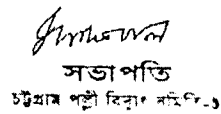 সভাপতি
চট্টগ্রাম পল্লী বিদ্যুৎ সমিতি-১